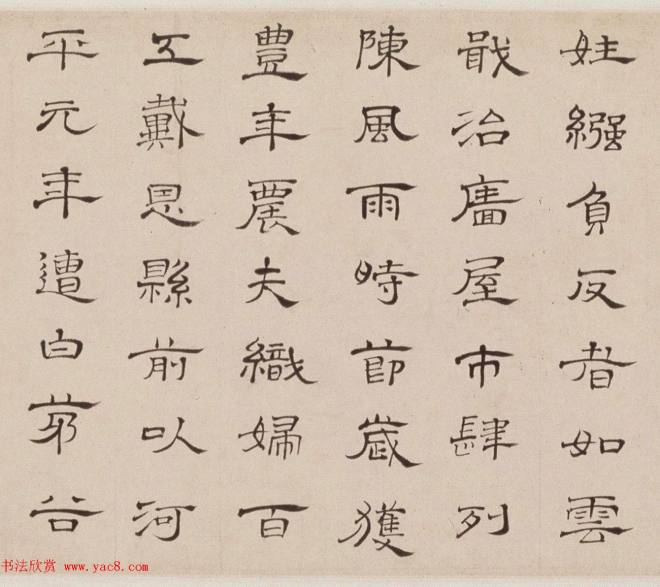 姓繦負反者如雲
戢治廧屋市肆列
陳風雨時節歲獲
豊年農夫織婦百
工戴恩縣前以河
平元年遭白茅谷
书法欣赏 www.yac8.com